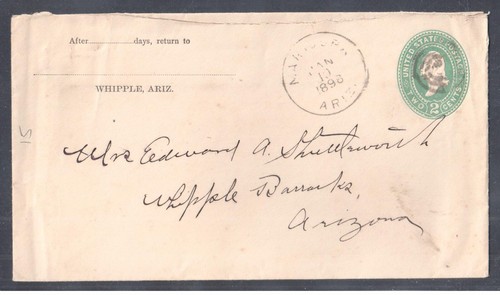 After ________ days, return to
WHIPPLE, ARIZ.
JAN
13
1896
ARIZ.
UNITED STATES POSTAGE
TWO 2 CENTS
15
Mrs Edward A. Shuttleworth
Whipple Barracks,
Arizona